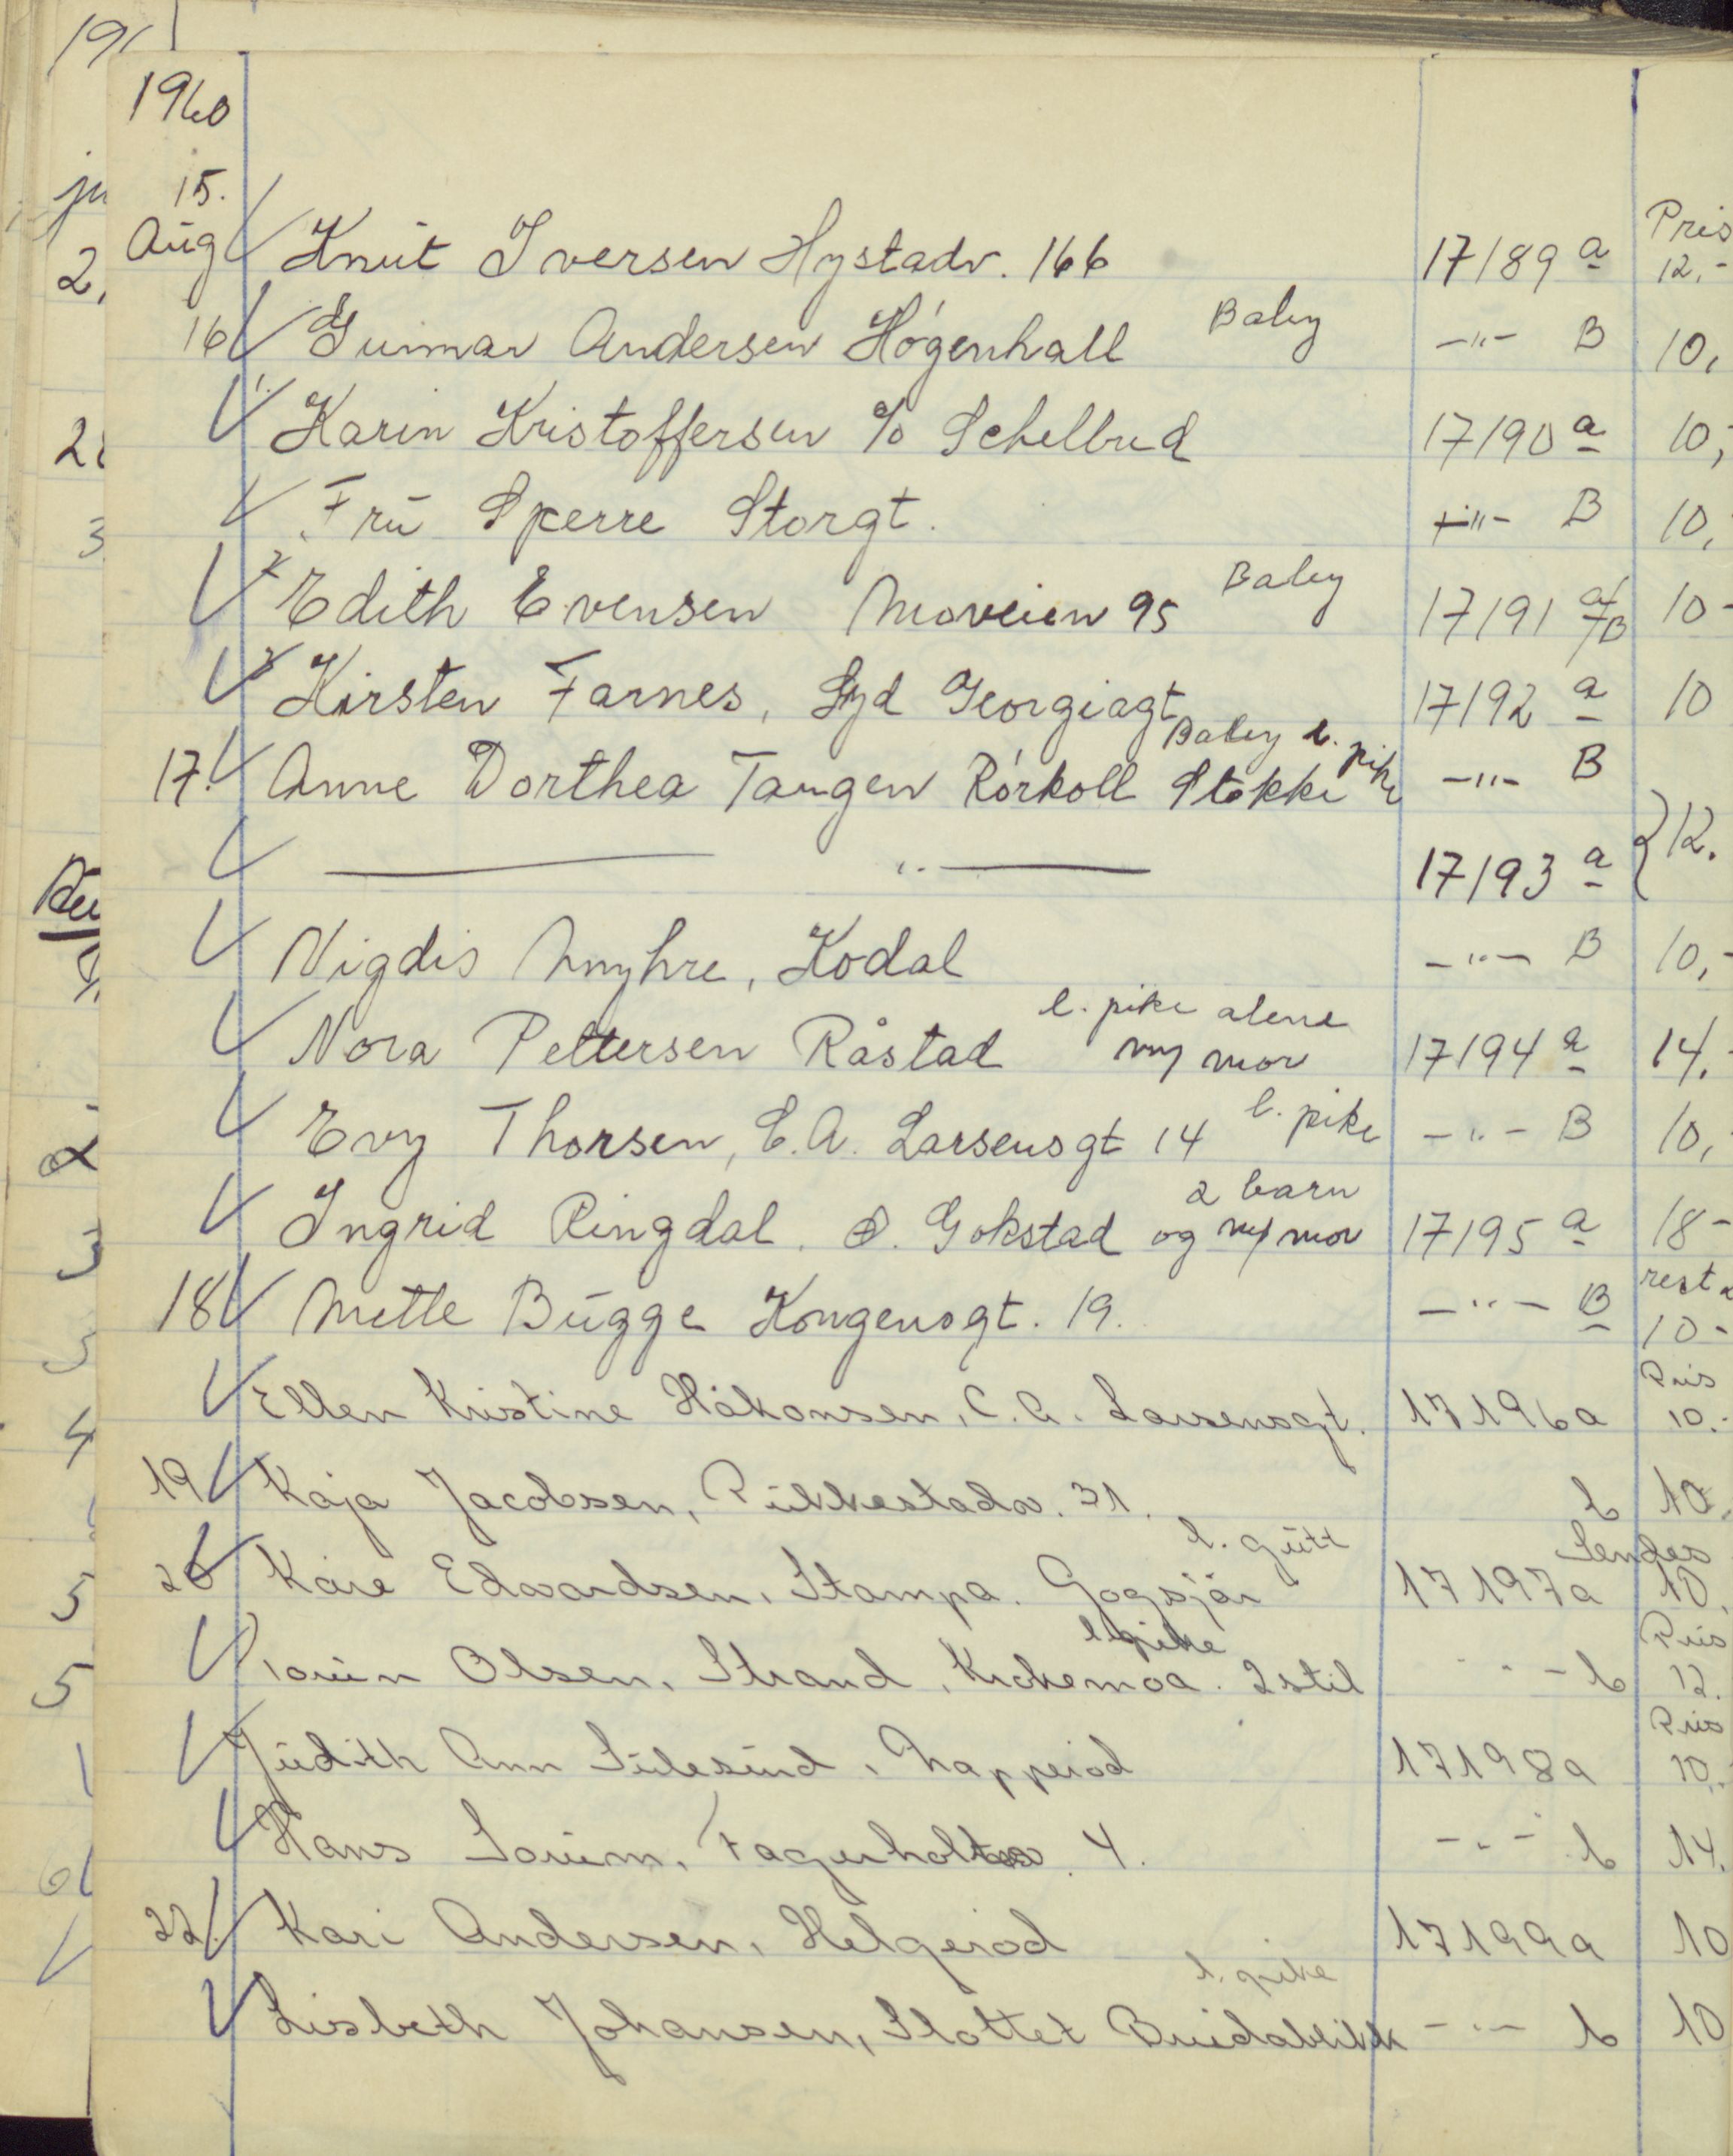 1960
15.
Aug Knut Iversen Hystadv. 166 17189 a Pris 12.-
16 Gunnar Andersen Högenhall Baby -"- B 10,
Karin Kristoffersen c/o Schelbred 17190 a 10,-
Fru Sperre Storgt. -"- B 10,
Edith Evensen Moveien 95 Baby 17191 a/B 10-
Kirsten Farnes, Syd Georgiagt 17192 a 10
17. Anne Dorthea Tangen Rörkoll Stokke Baby l. pike -"- B
" 17193 a } 12.
Vigdis Myhre, Kodal -"- B 10,-
Nora Pettersen Råstad l. pike alene m/ mor 17194 a 14.-
Evy Thorsen, C.A. Larsensgt 14 l. pike -"- B 10,-
Ingrid Ringdal. Ø. Gokstad 2 barn og m/ mor 17195 a 18-
18 Mette Bugge Kongensgt. 19. -"- B rest 10-
Ellen Kristine Håkonsen, C.A. Larsensgt. 17196a Pris 10.-
19 Kaja Jacobsen, Pukkestadv. 31. b 10.
20 Kåre Edvardsen, Stampa. Gogsjø l. gutt 17197a Sendes 10.
Olsen, Strand, Krokemoa. 2 stil l. pike -"- b Pris 12.
Judith Ann Sulesund, Napperød 17198a Pris 10.-
Hans Sorum, Fagerholtv. 4. -"- b 14.
22. Kari Andersen, Helgerød 17199a 10
Lisbeth Johansen, Slottet Breidablikk l. pike -"- b 10